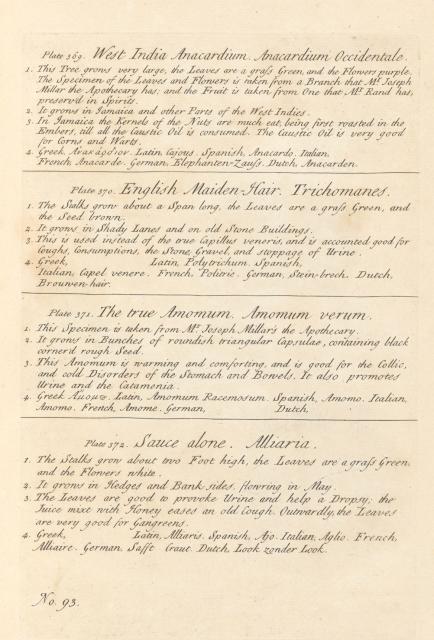 Plate 369. West India Anacardium. Anacardium Occidentale.
1. This Tree grows very large, the Leaves are a grass Green, and the Flowers purple.
The Specimen of the Leaves and Flowers is taken from a Branch that Mr. Joseph
Millar the Apothecary has; and the Fruit is taken from One that Mr. Rand has,
preserv'd in Spirits.
2. It grows in Jamaica and other Parts of the West Indies.
3. In Jamaica the Kernels of the Nuts are much eat, being first roasted in the
Embers, till all the Caustic Oil is consumed. The Caustic Oil is very good
for Corns and Warts.
4. Greek, Latin, Cajous. Spanish, Anacardo. Italian,
French, Anacarde. German, Elephanten-Lauss. Dutch, Anacarden.
Plate 370. English Maiden-Hair. Trichomanes.
1. The Stalks grow about a Span long, the Leaves are a grass Green, and
the Seed brown.
2. It grows in Shady Lanes and on old Stone Buildings.
3. This is used instead of the true Capillus veneris, and is accounted good for
Coughs, Consumptions, the Stone, Gravel, and stoppage of Urine.
4. Greek, Latin, Polytrichum. Spanish,
Italian, Capel venere. French, Politric. German, Stein-brech. Dutch,
Brouwen-hair.
Plate 371. The true Amomum. Amomum verum.
1. This Specimen is taken from Mr. Joseph Millar's the Apothecary.
2. It grows in Bunches of roundish triangular Capsulae, containing black
corner'd rough Seed.
3. This Amomum is warming and comforting, and is good for the Collic,
and cold Disorders of the Stomach and Bowels. It also promotes
Urine and the Catamenia.
4. Greek Latin, Amomum Racemosum. Spanish, Amomo. Italian,
Amomo. French, Amome. German, Dutch,
Plate 372. Sauce alone. Alliaria.
1. The Stalks grow about two Foot high, the Leaves are a grass Green,
and the Flowers white.
2. It grows in Hedges and Bank-sides, flowring in May.
3. The Leaves are good to provoke Urine and help a Dropsy; the
Juice mixt with Honey eases an old Cough. Outwardly, the Leaves
are very good for Gangreens.
4. Greek, Latin, Alliaris. Spanish, Ajo. Italian, Aglio. French,
Alliaire. German, Safft Craut. Dutch, Look zonder Look.
No. 93.